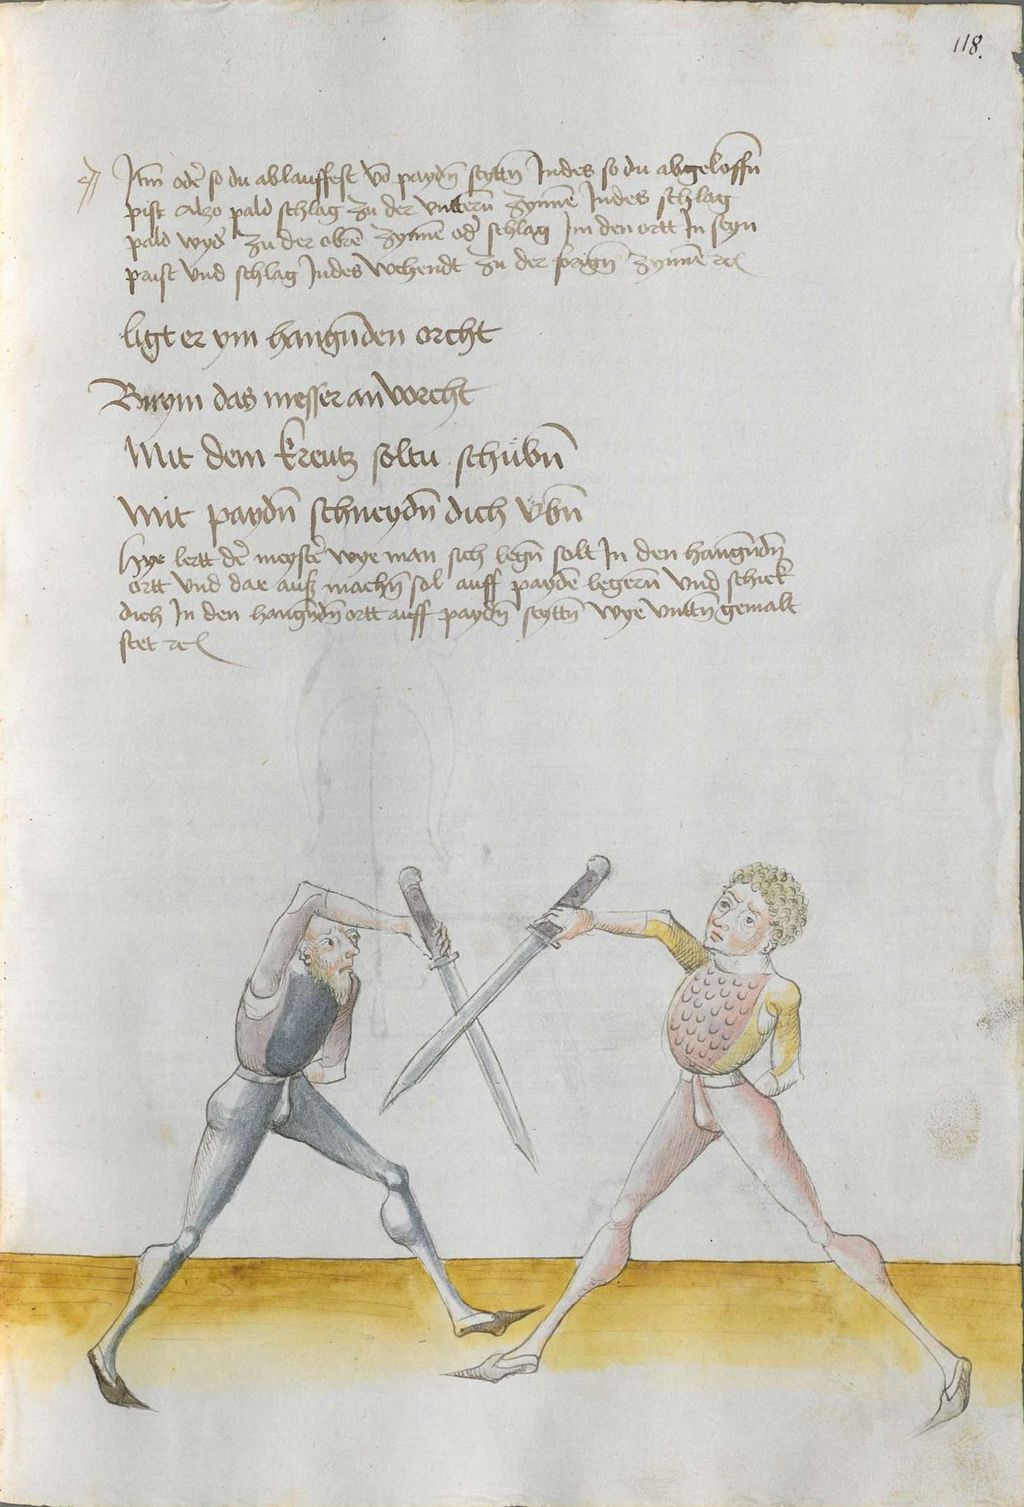 118.
Itm̄ oder̄ so du ablauffest vō paydn̄ seyttn̄ Indes so du abgeloffn̄
pist Alzo pald schlag zu der vnttern̄ zynnē Indes schlag
pald wyd̄ zu der obrē zynnē od̄ schlag Im den ortt In seyn
prust vnd schlag Indes zu der zynnē rc
ligt er ym hangn̄den orcht
Bnym das messer an vorcht
Mit dem kreutz soltu schübn̄
Mit paydn̄ schneydn̄ dich vbn̄
Hye lertt der̄ meyster̄ wye man sich legn̄ solt In den hangn̄dn̄
ortt vnd dar auß machn̄ sol auff paydē legern̄ vnd schick
dich In den hangn̄dn̄ ortt auff paydn̄ seyttn̄ wye vnttn̄ gemalt
stet rc